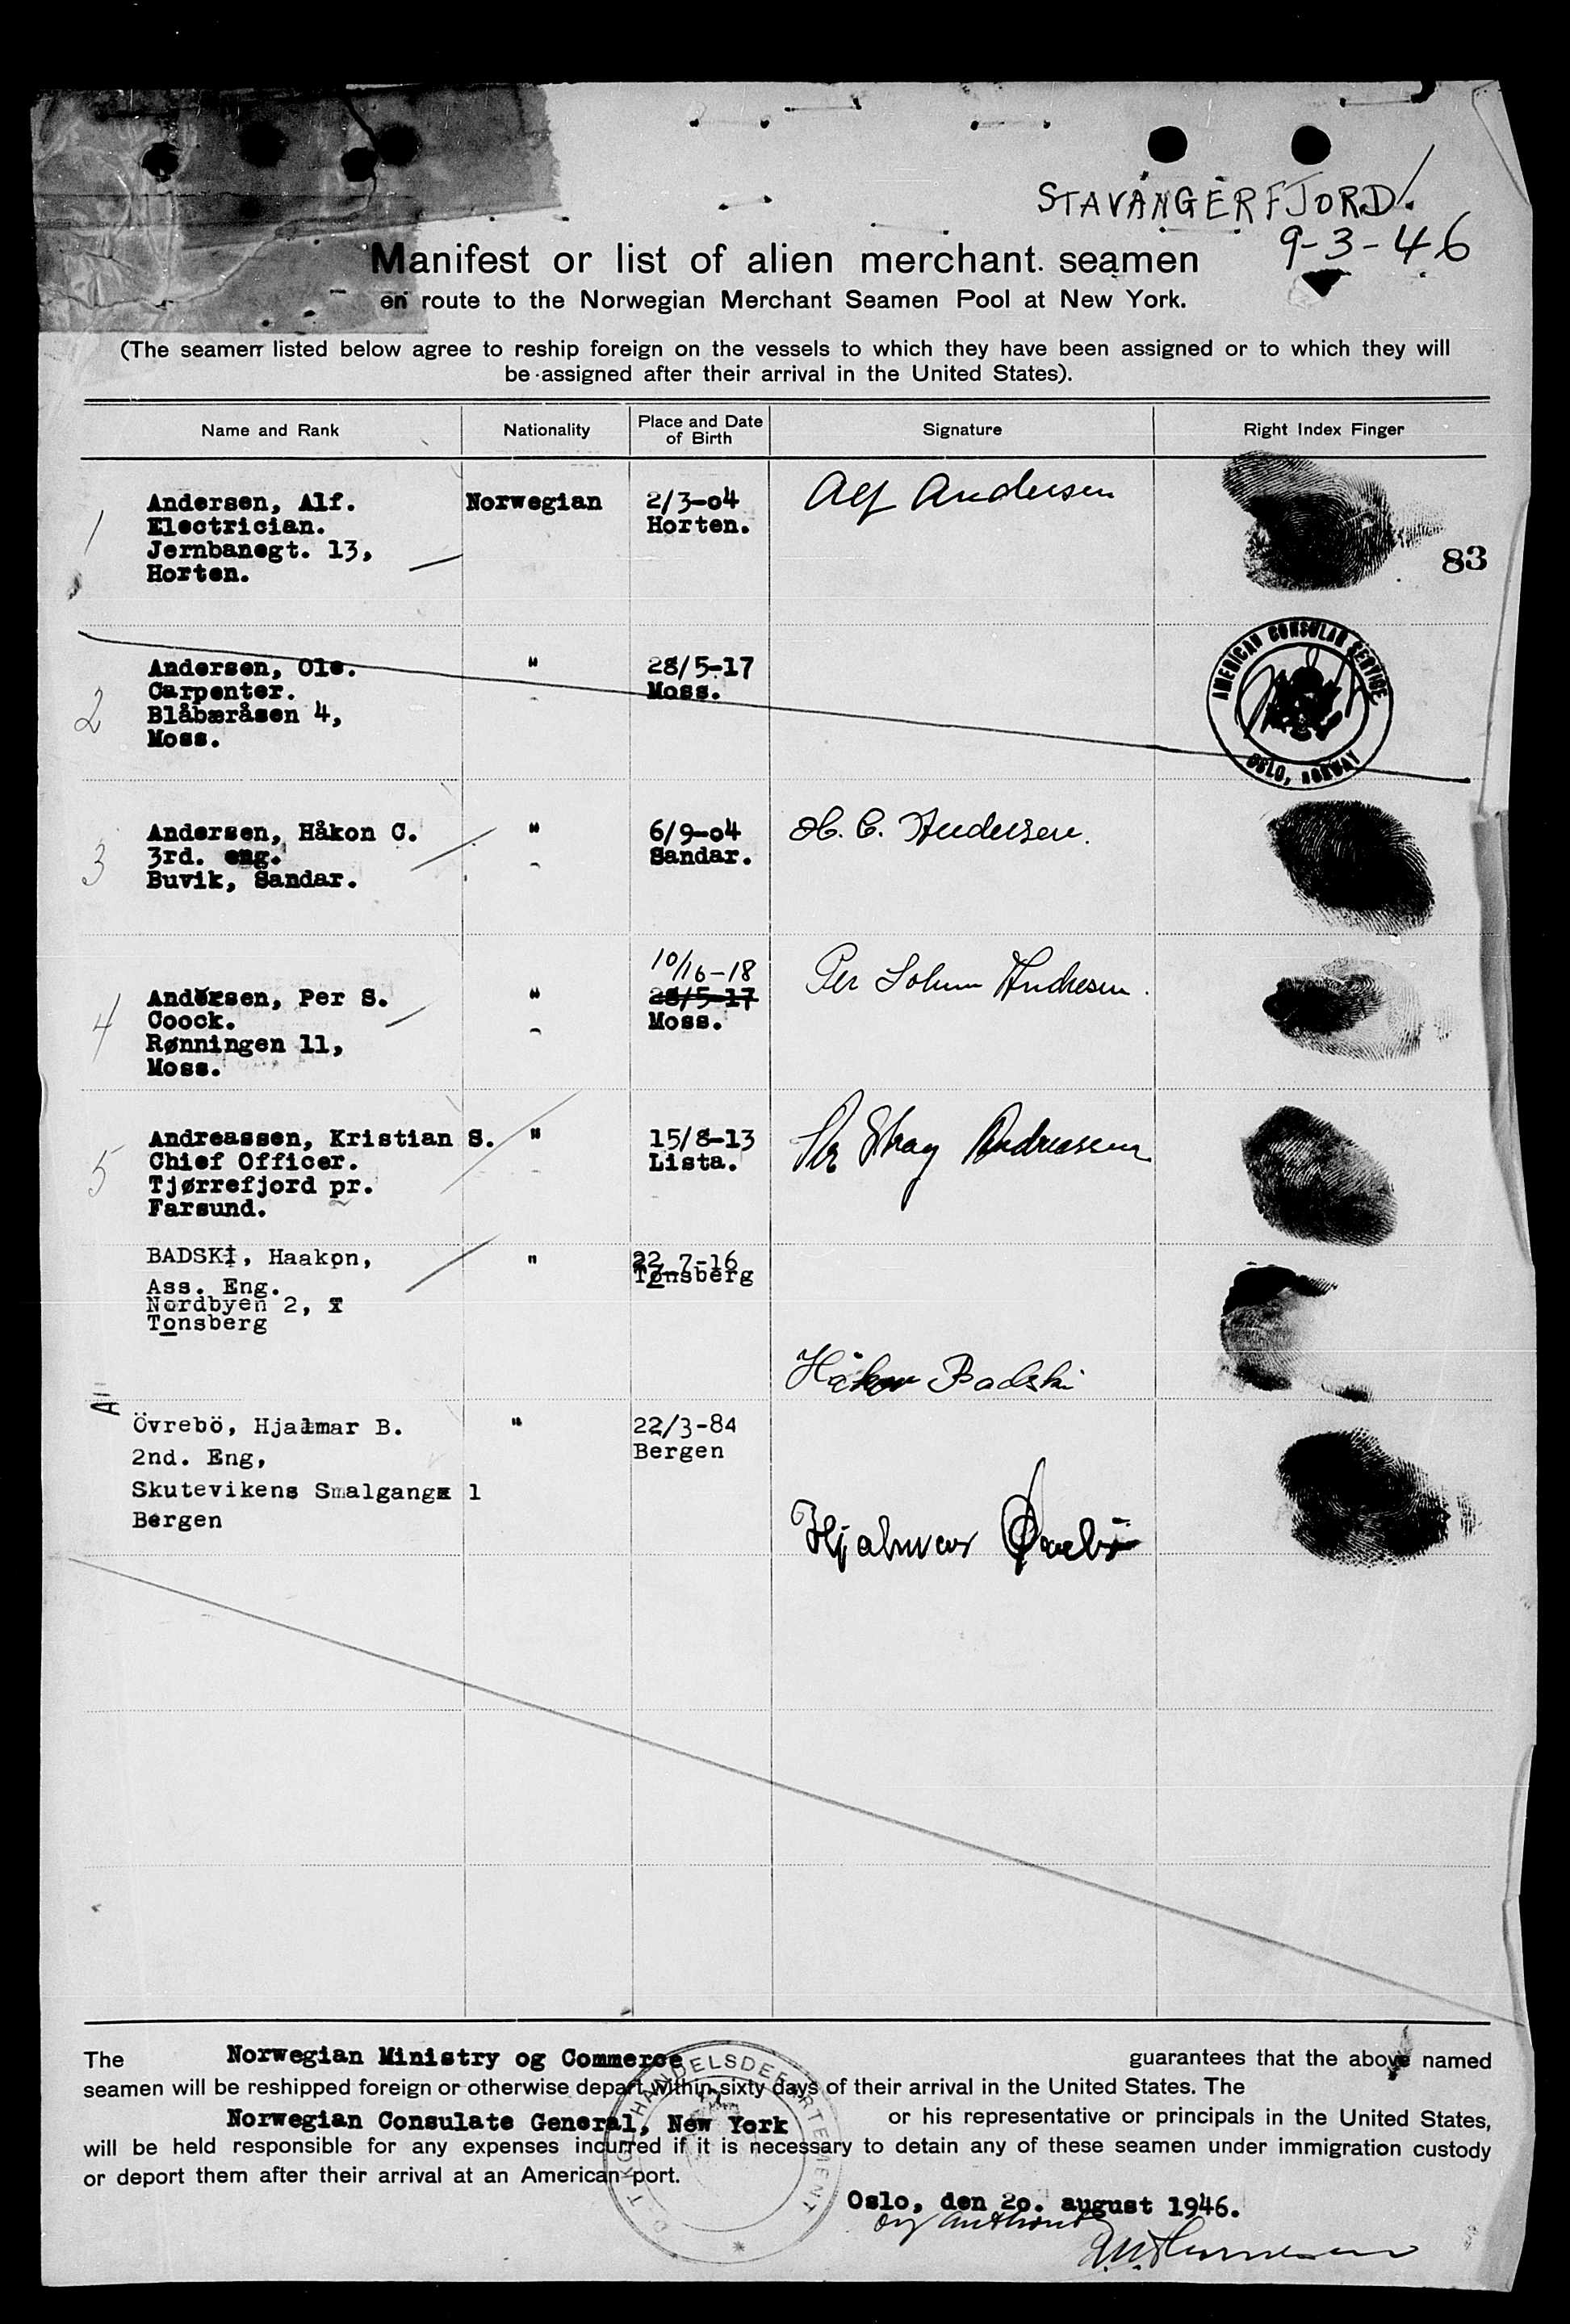 STAVANGERFJORD!
9-3-46
Manifest or list of alien merchant seamen
en route to the Norwegian Merchant Seamen Pool at New York.
(The seamen listed below agree to reship foreign on the vessels to which they have been assigned or to which they will
be assigned after their arrival in the United States).
Name and Rank Nationality Place and Date of Birth Signature Right Index Finger
1 Andersen, Alf. Norwegian 2/3-04 Alf Andersen
Electrician. Horten.
Jernbanegt. 13,
Horten.
83
2 Andersen, Ole. " 28/5-17
Carpenter. Moss.
Blåbæråsen 4,
Moss.
AMERICAN CONSULAR SERVICE
OSLO, NORWAY
3 Andersen, Håkon C. " 6/9-04 H. C. Andersen.
3rd. eng. Sandar.
Buvik, Sandar.
10/16-18
4 Andersen, Per S. " 28/5-17 Per Solum Andresen.
Coock. Moss.
Rønningen 11,
Moss.
5 Andreassen, Kristian S. " 15/8-13 Andreassen
Chief Officer. Lista.
Tjørrefjord pr.
Farsund.
BADSKI, Haakon, " 22-7-16
Tonsberg
Ass. Eng.
Nordbyen 2, T
Tonsberg
Håkon Badski
Övrebö, Hjalmar B. " 22/3-84
2nd. Eng, Bergen
Skutevikens Smalgang 1
Bergen
Hjalmar Øvrebö
The Norwegian Ministry og Commerce guarantees that the above named
seamen will be reshipped foreign or otherwise depart within sixty days of their arrival in the United States. The
Norwegian Consulate General, New York or his representative or principals in the United States,
will be held responsible for any expenses incurred if it is necessary to detain any of these seamen under immigration custody
or deport them after their arrival at an American port.
HANDELSDEPARTEMENT
Oslo, den 20. august 1946.